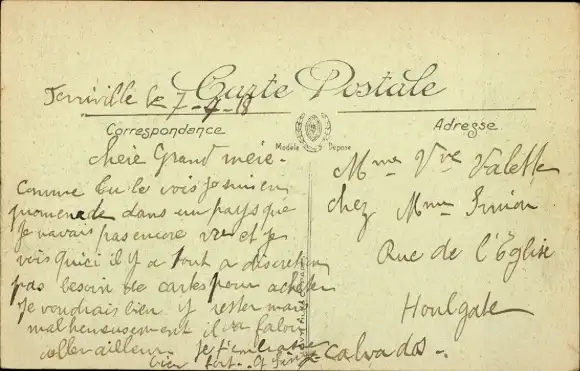 Carte Postale
le 7-7-18
Correspondance
Modèle Déposé
Adresse
chère Grand mère.
Comme tu le vois je suis en
promenade dans un pays que
je navais pas encore vu et je
vois quici il y a tout a discretion
pas besoin de cartes pour acheter
je voudrais bien y rester mais
malheureusement il va faloir
aller ailleur. je t'embrasse
bien fort.
Mme Vve Valette
chez Mme
Rue de l'Eglise
Houlgate
Calvados.